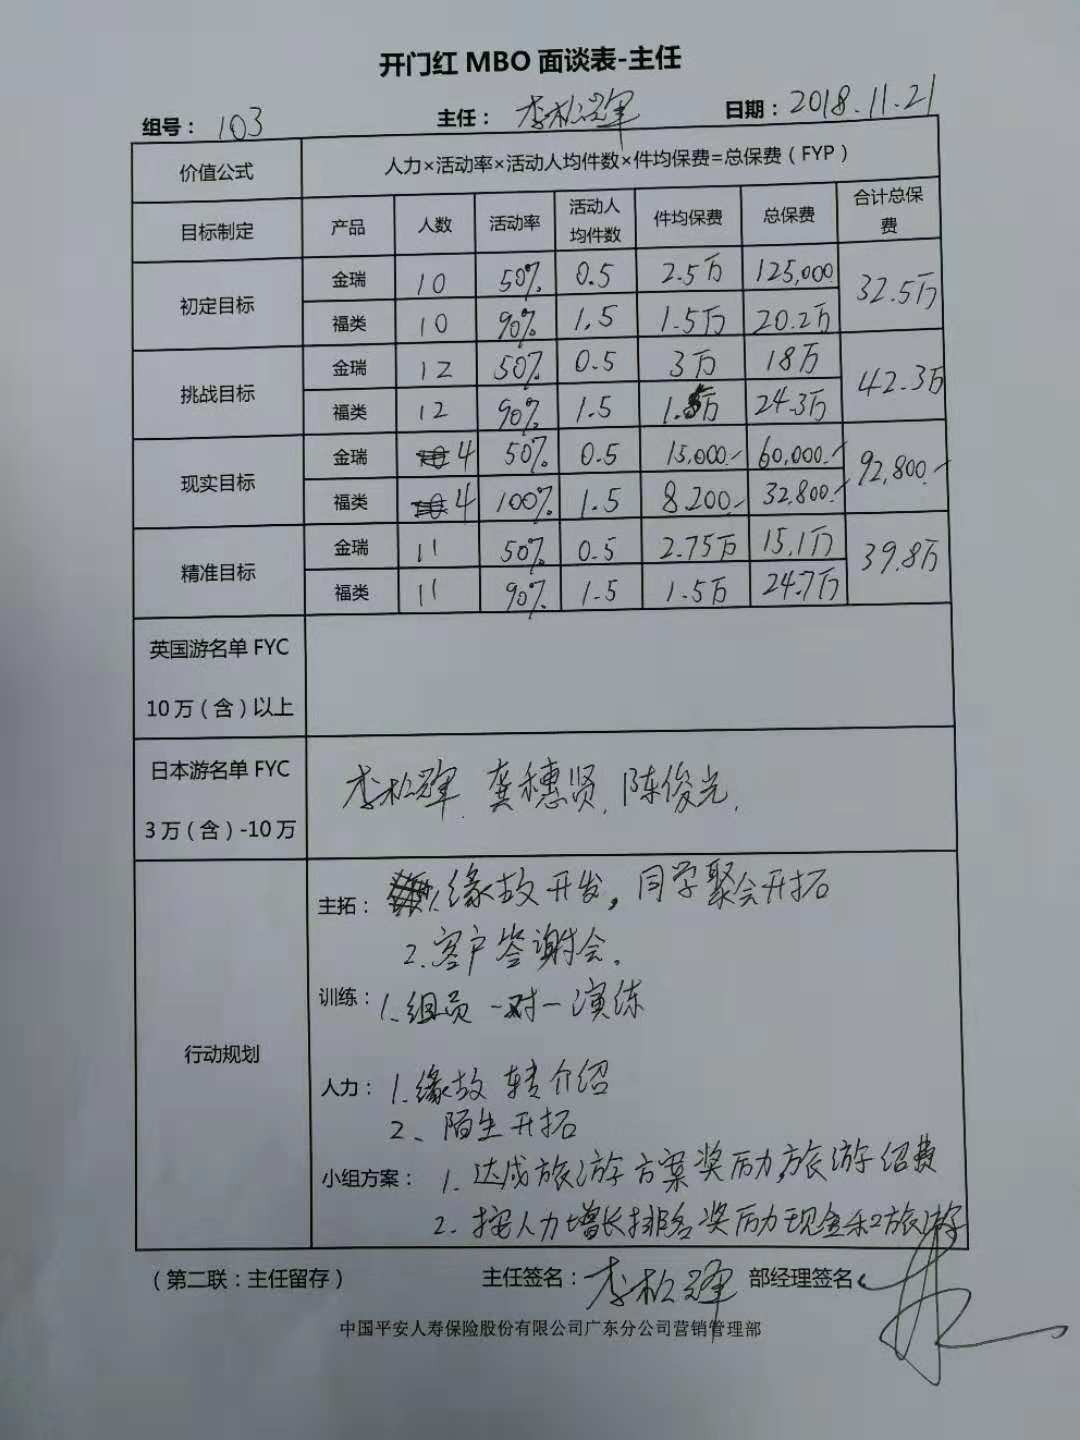 开门红 MBO 面谈表-主任
组号：103 主任：李松辉 日期：2018.11.21
价值公式 人力×活动率×活动人均件数×件均保费=总保费（FYP）
目标制定 产品 人数 活动率 活动人均件数 件均保费 总保费 合计总保费
初定目标 金瑞 10 50% 0.5 2.5万 125,000 32.5万
福类 10 90% 1.5 1.5万 20.2万
挑战目标 金瑞 12 50% 0.5 3万 18万 42.3万
福类 12 90% 1.5 1.5万 24.3万
现实目标 金瑞 4 50% 0.5 15,000.- 60,000.- 92,800.-
福类 4 100% 1.5 8.200.- 32,800.-
精准目标 金瑞 11 50% 0.5 2.75万 15.1万 39.8万
福类 11 90% 1.5 1.5万 24.7万
英国游名单 FYC
10万（含）以上
日本游名单 FYC
3万（含）-10万
李松辉. 龚穗贤. 陈俊光.
行动规划
主拓： 1.缘故开发，同学聚会开拓
2.客户答谢会。
训练： 1.组员一对一演练
人力： 1.缘故转介绍
2、陌生开拓
小组方案： 1.达成旅游方案奖励，旅游经费
2.按人力增长排名奖励现金和旅游
（第二联：主任留存） 主任签名：李松辉 部经理签名：
中国平安人寿保险股份有限公司广东分公司营销管理部